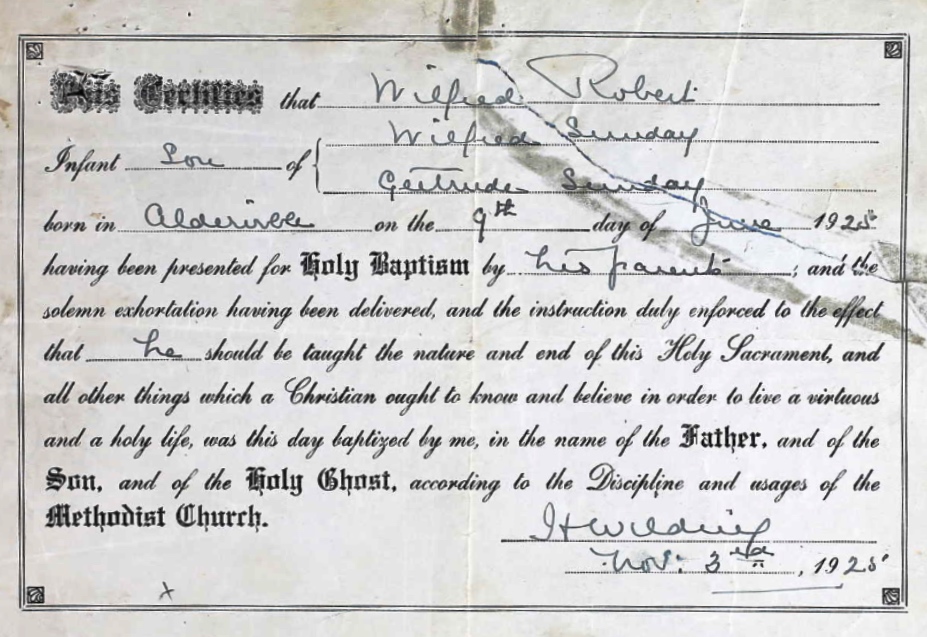 This Certifies that Wilfred Robert
Wilfred Sunday
Infant Son of
Gertrude Sunday
born in on the 9th day of June 1925
having been presented for Holy Baptism by his parents; and the
solemn exhortation having been delivered, and the instruction duly enforced to the effect
that he should be taught the nature and end of this Holy Sacrament, and
all other things which a Christian ought to know and believe in order to live a virtuous
and a holy life, was this day baptized by me, in the name of the Father, and of the
Son, and of the Holy Ghost, according to the Discipline and usages of the
Methodist Church.
Nov: 3rd, 1925